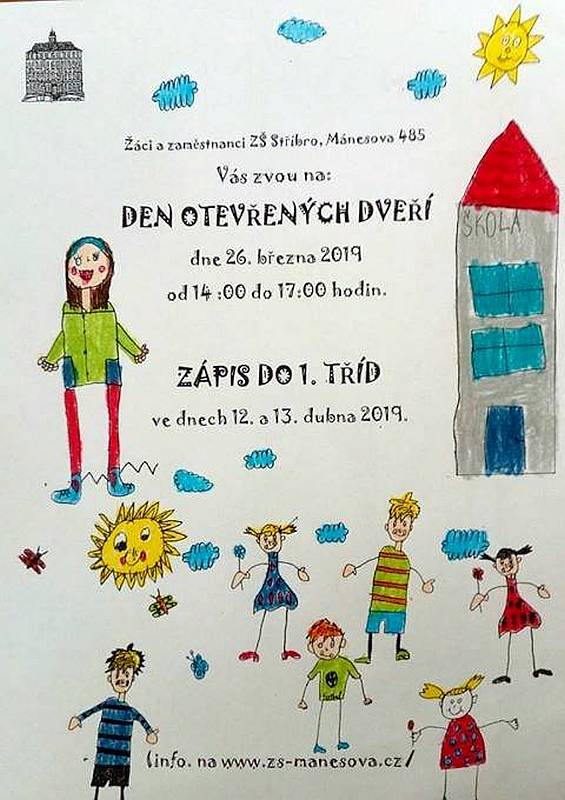 Žáci a zaměstnanci ZŠ Stříbro, Mánesova 485
Vás zvou na:
DEN OTEVŘENÝCH DVEŘÍ
dne 26. března 2019
od 14 :00 do 17:00 hodin.
ŠKOLA
ZÁPIS DO 1. TŘÍD
ve dnech 12. a 13. dubna 2019.
(info. na www.zs-manesova.cz/